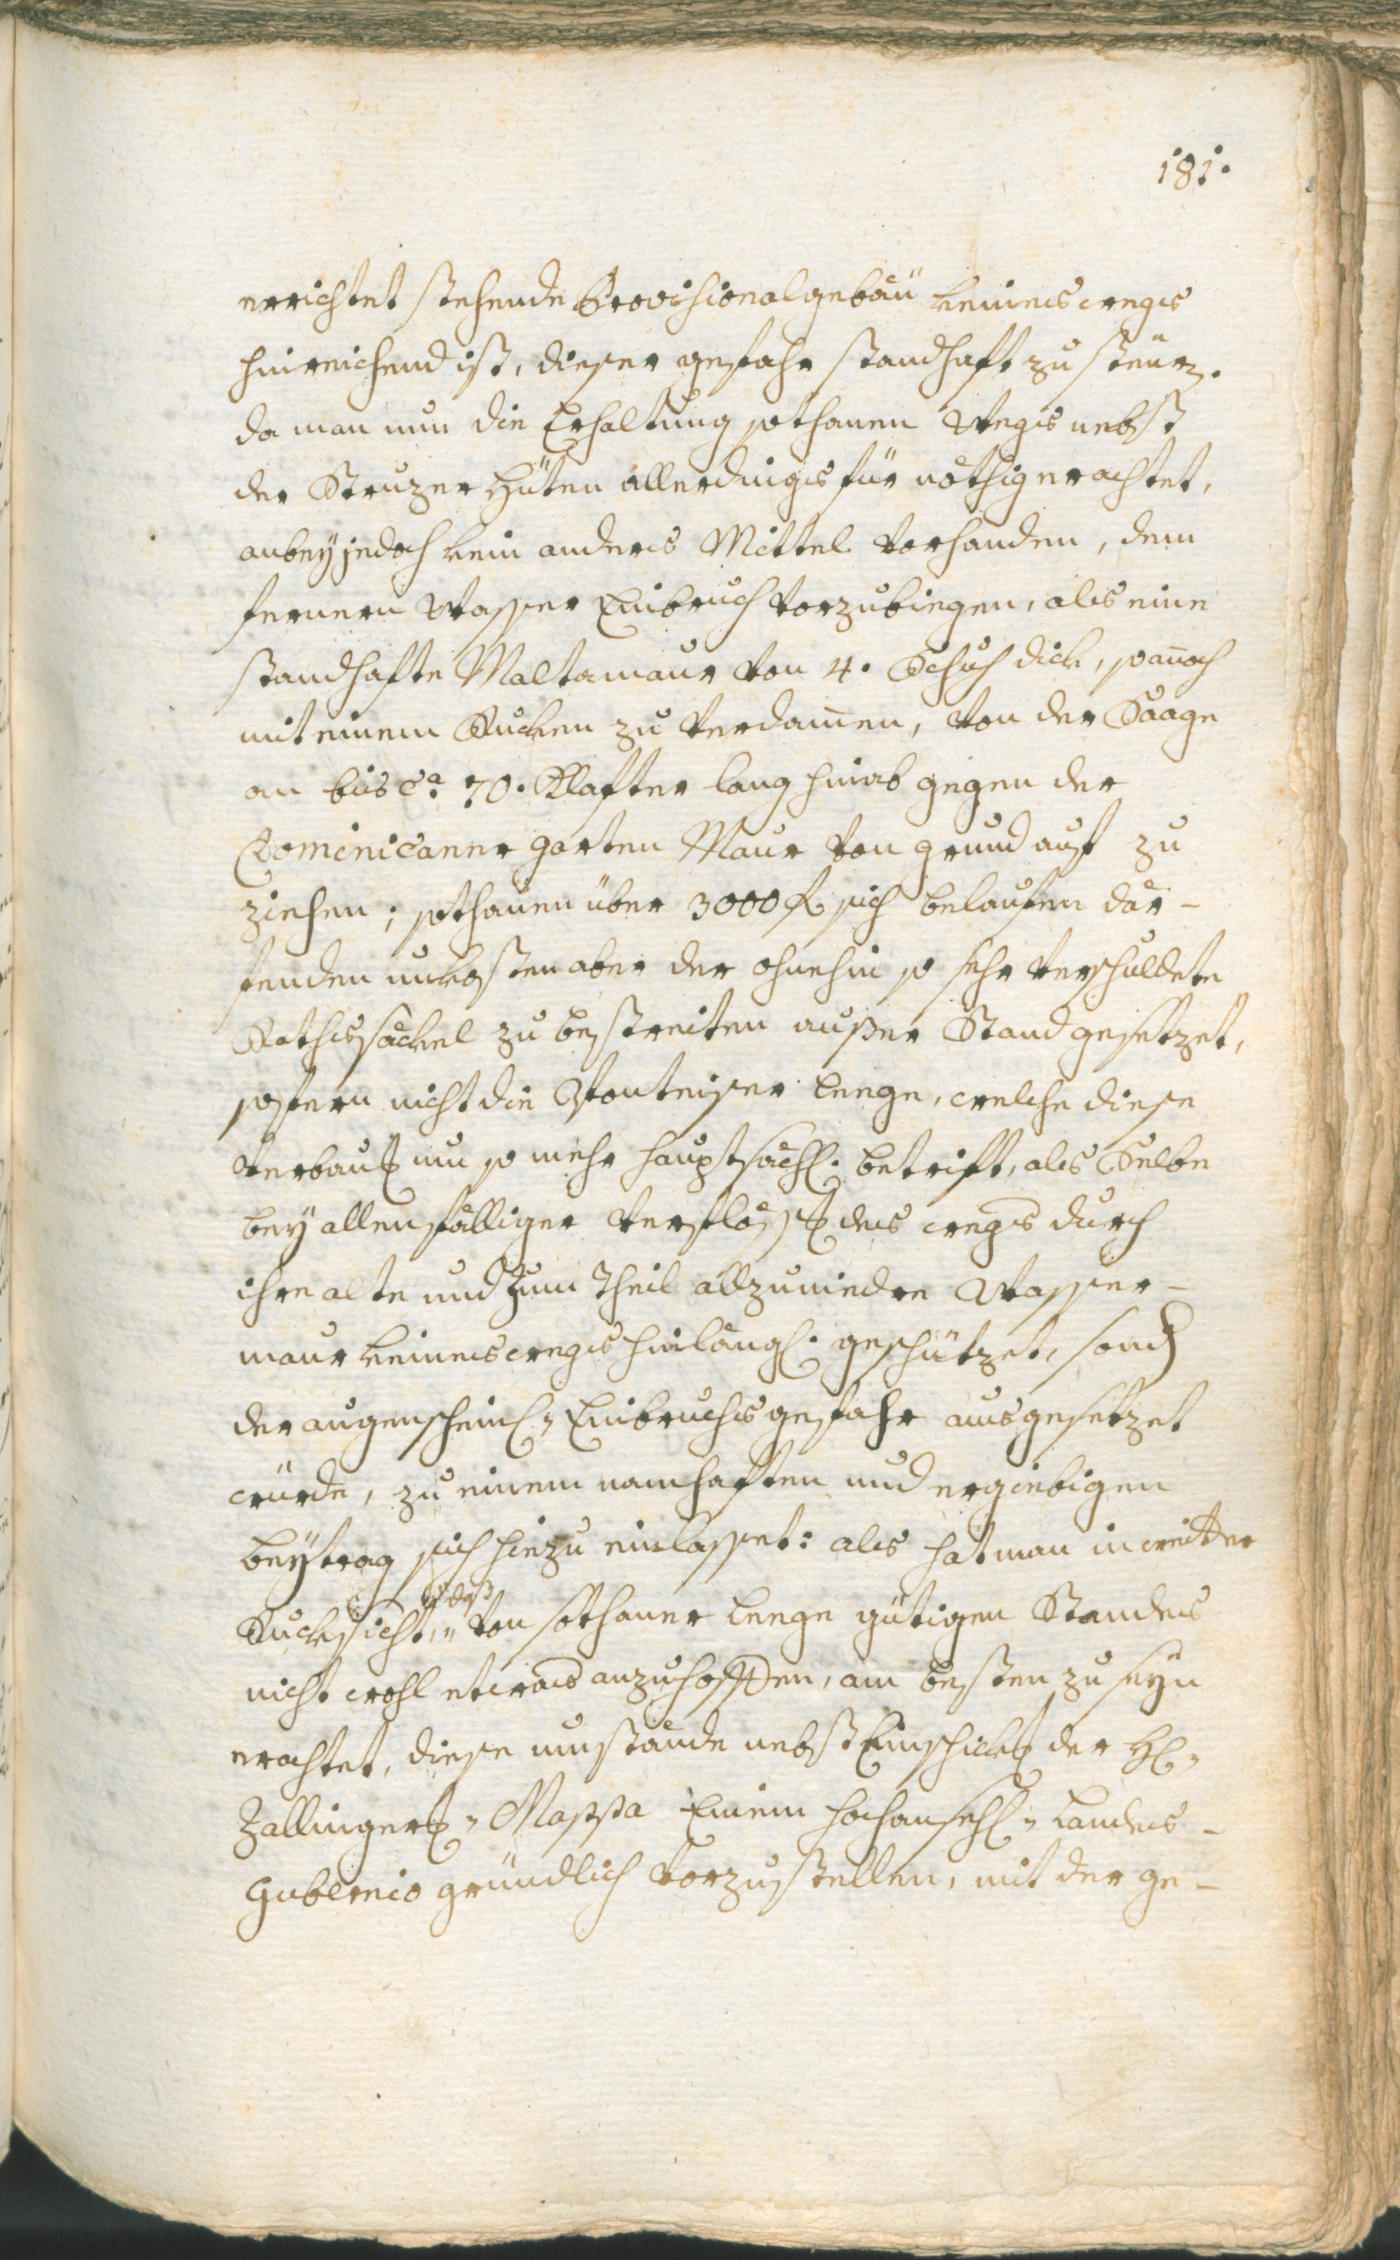 181.
errichtet stehende Provisionalgebäü keineswegs
hinreichend ist, dieser gefahr standhaft zu steürn.
da man nun die Erhaltung sothanen Wegs nebst
der Struzer Hüten allerdings für nöthig erachtet,
anbey jedoch kein anders Mittel vorhanden, dem
fernern Wasser Einbruch vorzubiegen, als eine
standhafte Maltamaur von 4. Schuh dick, so auch
mit einem Rucken zu verdammen, von der Saage
an bis Ca 70. Klafter lang hinab gegen der
Dominicaner garten Maur von grund auf zu
ziehen; sothanen über 3000 f sich belaufen där-
fenden unkosten aber der ohnehin so sehr verschuldete
Rathssäckel zu bestreiten außer Stand gesetzet,
sofern nicht die Wonteiser Leege, welche diese
verbauung um so mehr hauptsächl. betrift, als Selbe
bey allenfälliger verflößung des wegs durch
ihre alte und zum Theil allzuniedre Wasser-
maur keineswegs hinlängl. geschützet, sondern
der augenscheinl. Einbruchs gefahr ausgesetzet
würde, zu einem namhaften und ergiebigen
beytrag sich hiezu einlasset: als hat man in weitter
Rucksicht, daß von sothaner Leege gütigen Standes
nicht wohl etwas anzuhoffen, am besten zu seyn
erachtet, diese umstände nebst Einschickung der H:
Zallinger: Mappa Einem hochansehl: Landes-
Gubernio gründlich vorzustellen, mit der ge-